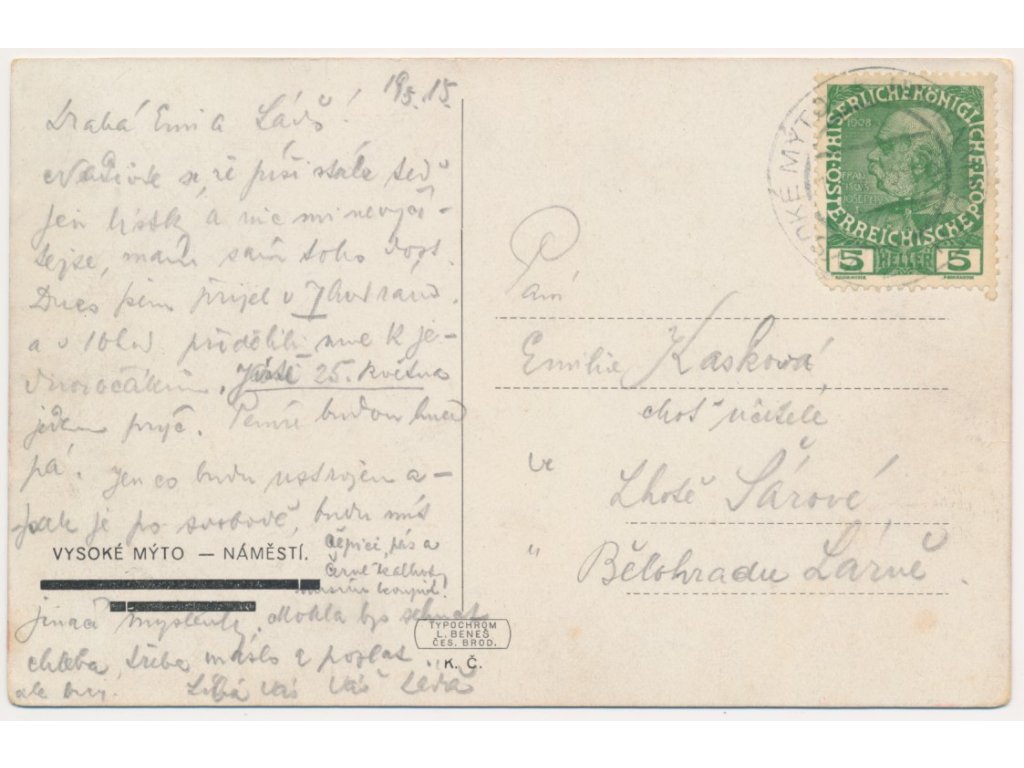 19/5. 15.
Drahá Emi a Láďo!
se, že píši stále teď
jen lístky a nic mi
mám sám toho dost.
Dnes jsem přijel v 7 hod ráno.
a v 10 hod přidělili mne k je-
dnoročákům. Jistě 25. května
jedem pryč. Peníze budou hned
pá. Jen co budu ustrojen a-
pak je po svobodě, budu mít
VYSOKÉ MÝTO — NÁMĚSTÍ.
čepici, pás a
černé kalhoty
musím koupit!
jinačí myšlenky. Mohla bys sehnat
chleba, třeba máslo a poslat
ale brzy. Líbá Vás Váš Láďa
TYPOCHROM
L. BENEŠ
ČES. BROD.
K. Č.
VYSOKÉ MÝTO
KAISERLICHE KÖNIGLICHE ÖSTERREICHISCHE POST
1908
FRANZ
JOSEPH
I
5 HELLER 5
Paní
Emilie Kasková,
choť učitele
ve Lhotě Šárové
" Bělohradu Lázně.